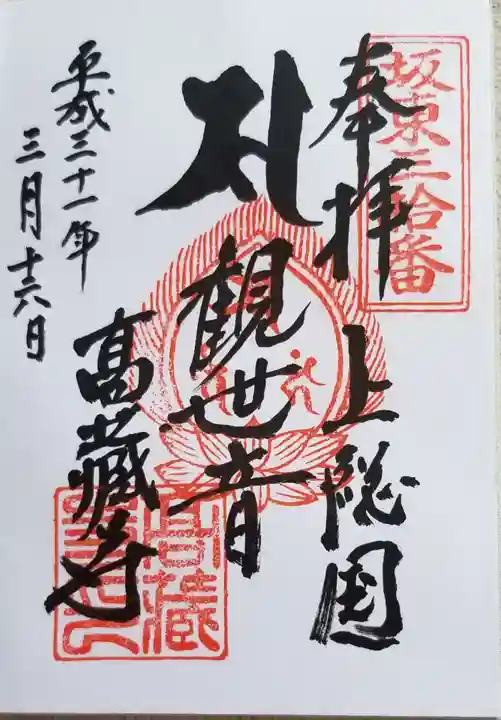 坂東三拾番
奉拝 上総国
観世音
高蔵寺
高蔵
平成三十一年
三月十六日